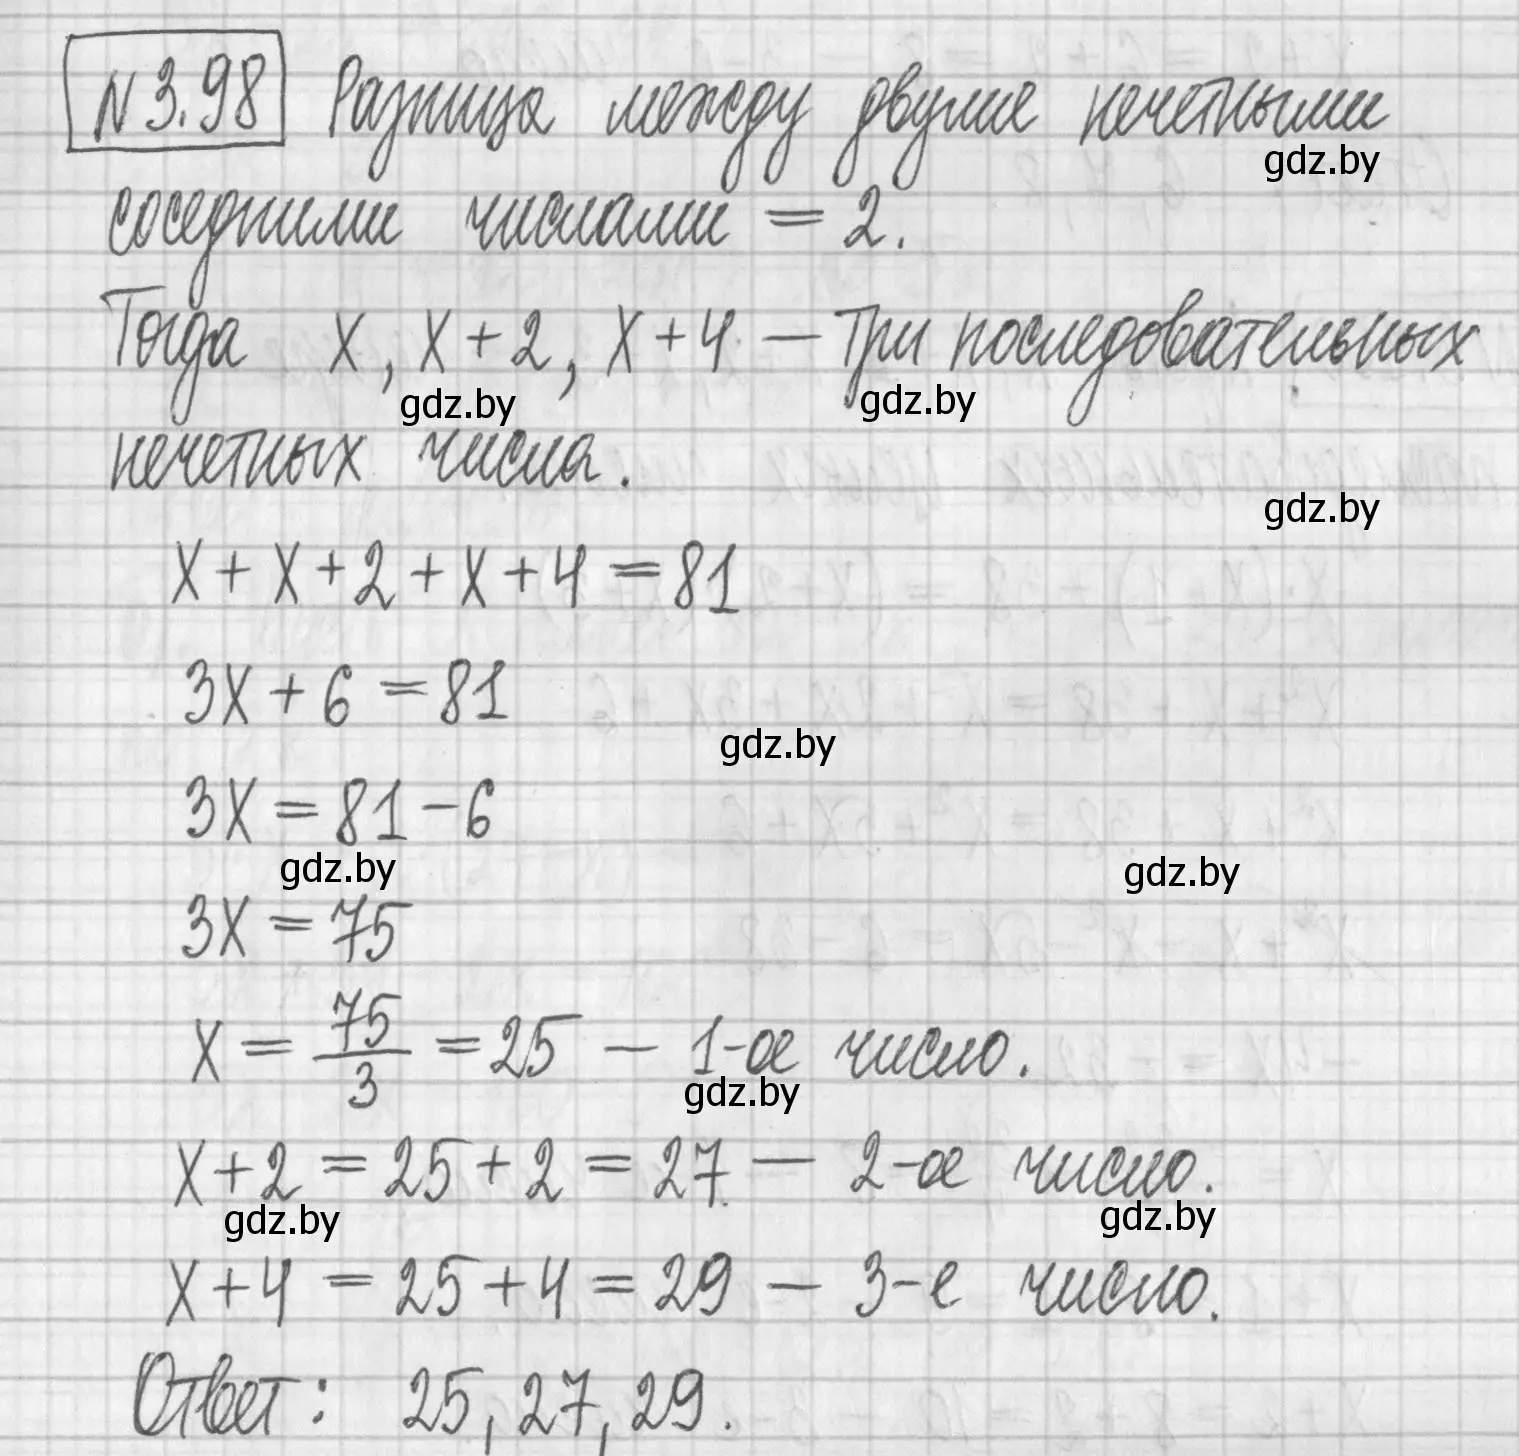 N 3.98 Разница между двумя нечетными
gdz.by
соседними числами = 2.
Тогда x, x + 2, x + 4 — три последовательных
gdz.by gdz.by
нечетных числа.
gdz.by
x + x + 2 + x + 4 = 81
3x + 6 = 81
gdz.by
3x = 81 - 6
gdz.by gdz.by
3x = 75
x = 75/3 = 25 — 1-ое число.
gdz.by
x + 2 = 25 + 2 = 27 — 2-ое число.
gdz.by gdz.by
x + 4 = 25 + 4 = 29 — 3-е число.
Ответ: 25, 27, 29.